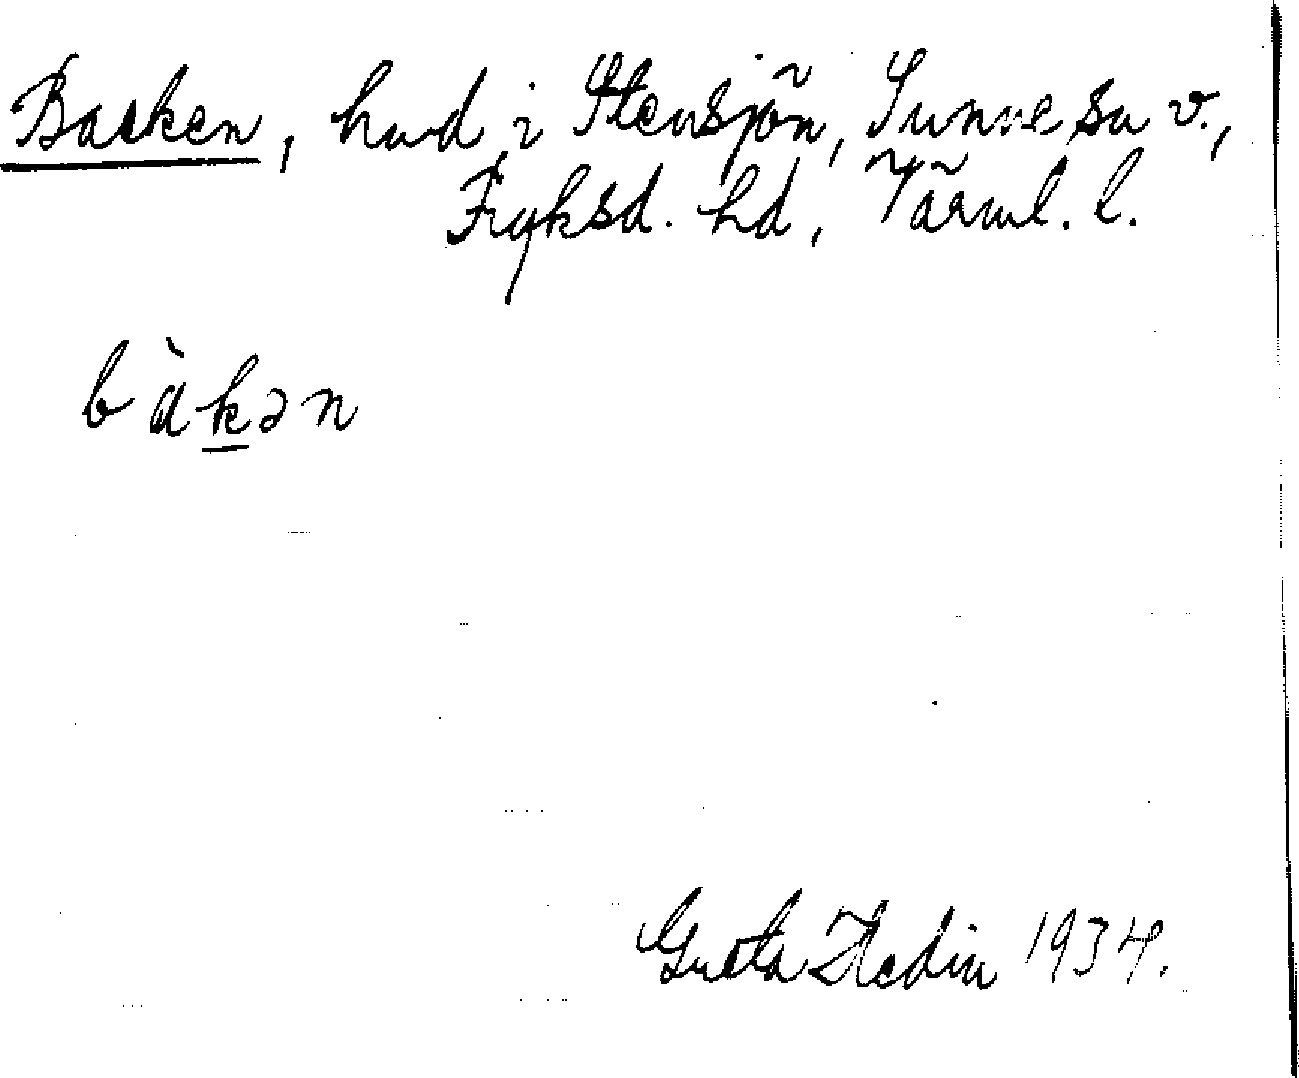 Backen, hmd i Stensjön, Sunne sn v.,
Fryksd. hd, Värml. l.
bàkən
Greta Hedin 1934.